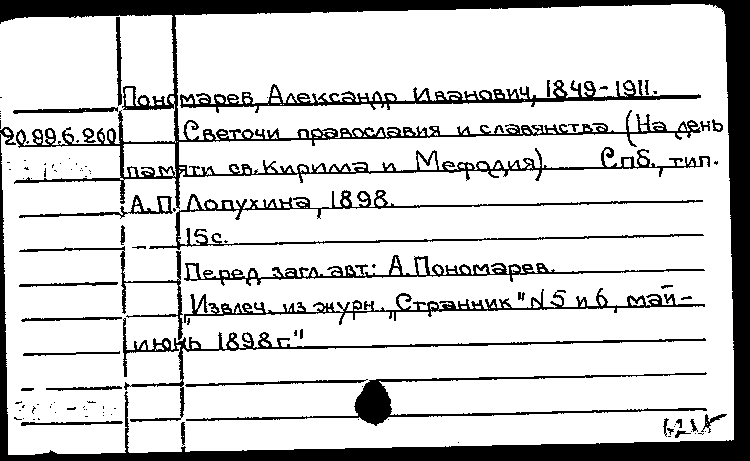 Пономарев, Александр Иванович, 1849-1911.
20.89.6.260 Светочи православия и славянства. (На день
памяти св. Кирилла и Мефодия). Спб., тип.
А.П. Лопухина, 1898.
15с.
Перед загл. авт.: А. Пономарев.
"Извлеч. из журн. „Странник" N5 и 6, май-
июнь 1898г."